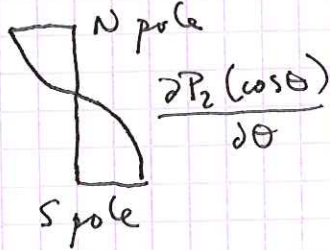 N pole
∂P₂(cosθ)
∂θ
S pole